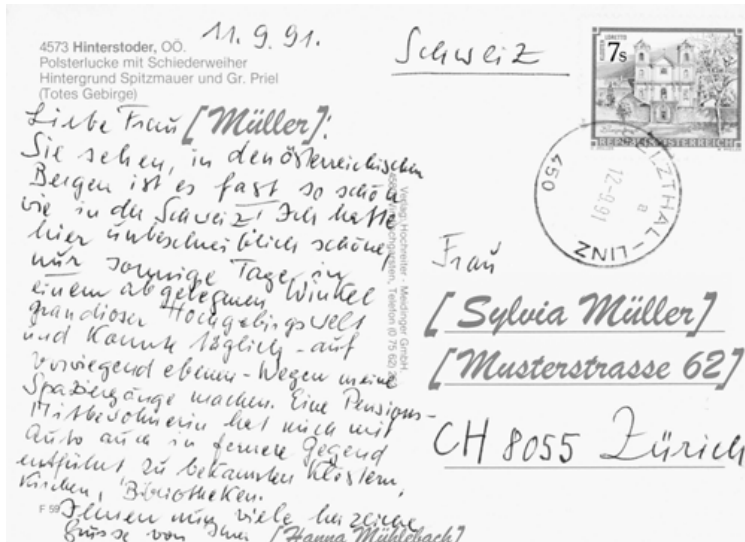 4573 Hinterstoder, OÖ.
Polsterlucke mit Schiederweiher
Hintergrund Spitzmauer und Gr. Priel
(Totes Gebirge)
11. 9. 91.
Liebe Frau [Müller]:
Sie sehen, in den österreichischen
Bergen ist es fast so schön
wie in der Schweiz! Ich hatte
hier unbeschreiblich schöne,
nur sonnige Tage in
einem abgelegenen Winkel
grandioser Hochgebirgswelt
und konnte täglich - auf
vorwiegend ebenen - Wegen meine
Spaziergänge machen. Eine Pensions-
Mitbewohnerin hat mich mit
Auto auch in fernere Gegend
entführt zu bekannten Klöstern,
Kirchen, Bibliotheken.
Ihnen nun viele herzliche
Grüsse von Ihrer [Hanna Mühlebach]
F 59
Verlag Hochreiter - Meidinger GmbH
Telefon (0 75 62)
Schweiz
KLOSTER LORETTO
7s
REPUBLIK ÖSTERREICH
LINZ
a
12.-9.91
450
Frau
[Sylvia Müller]
[Musterstrasse 62]
CH 8055 Zürich